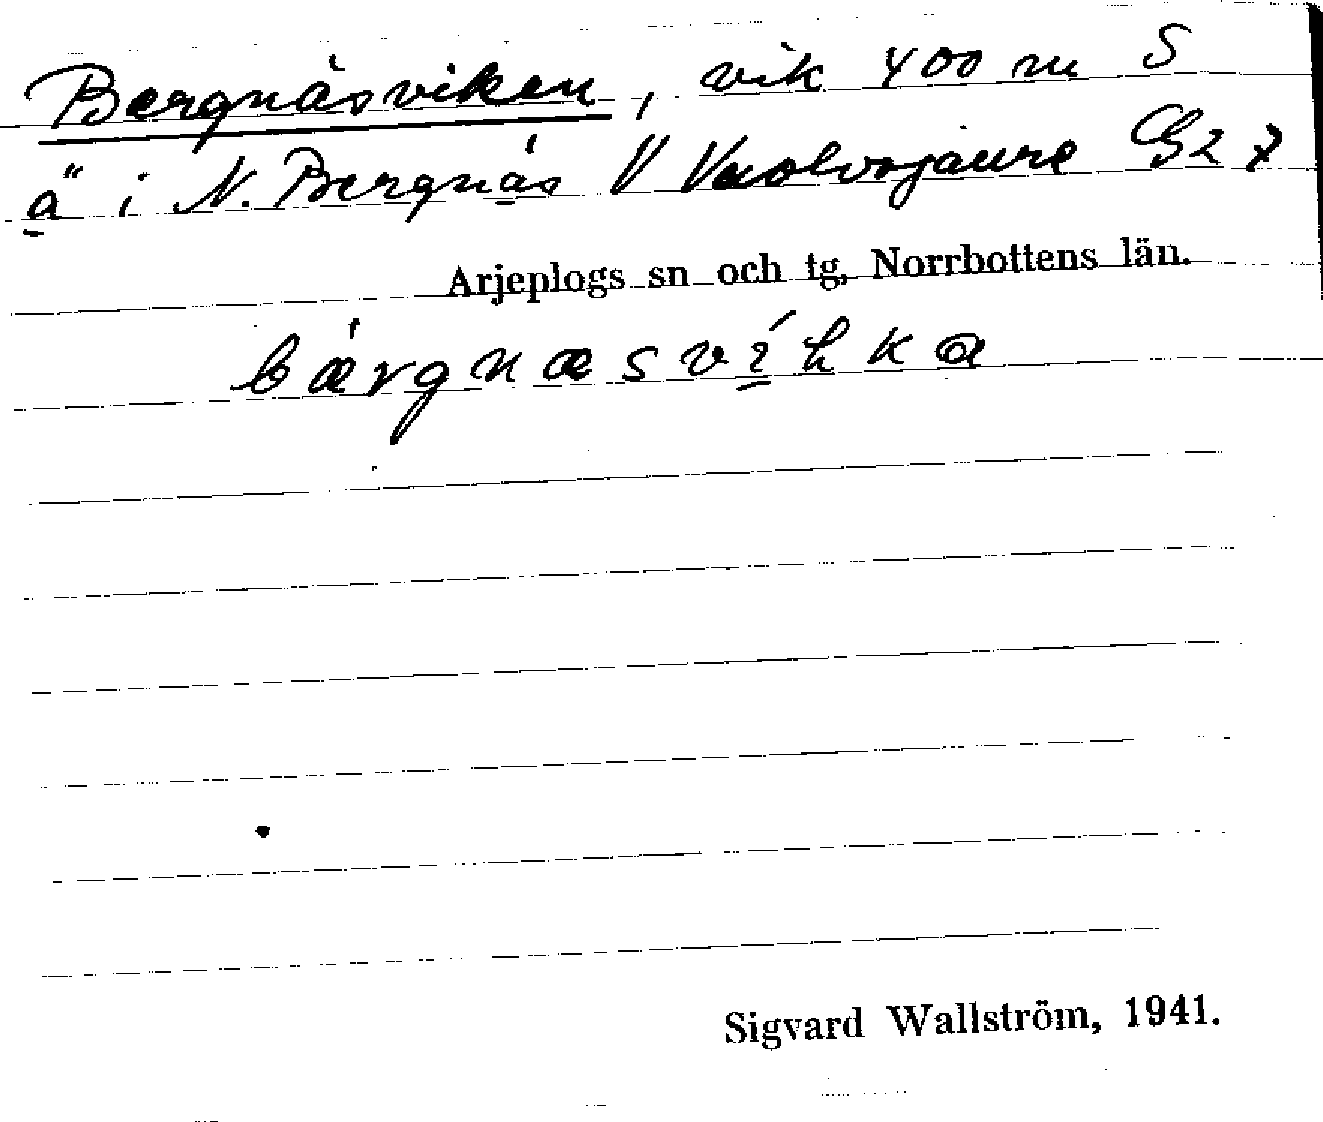 Bergnäsviken, vik 400 m S
"ä" i N. Bergnäs V Vuolvojaure G2 7
Arjeplogs sn och tg, Norrbottens län.
bǽrgnæsvíhka
Sigvard Wallström, 1941.